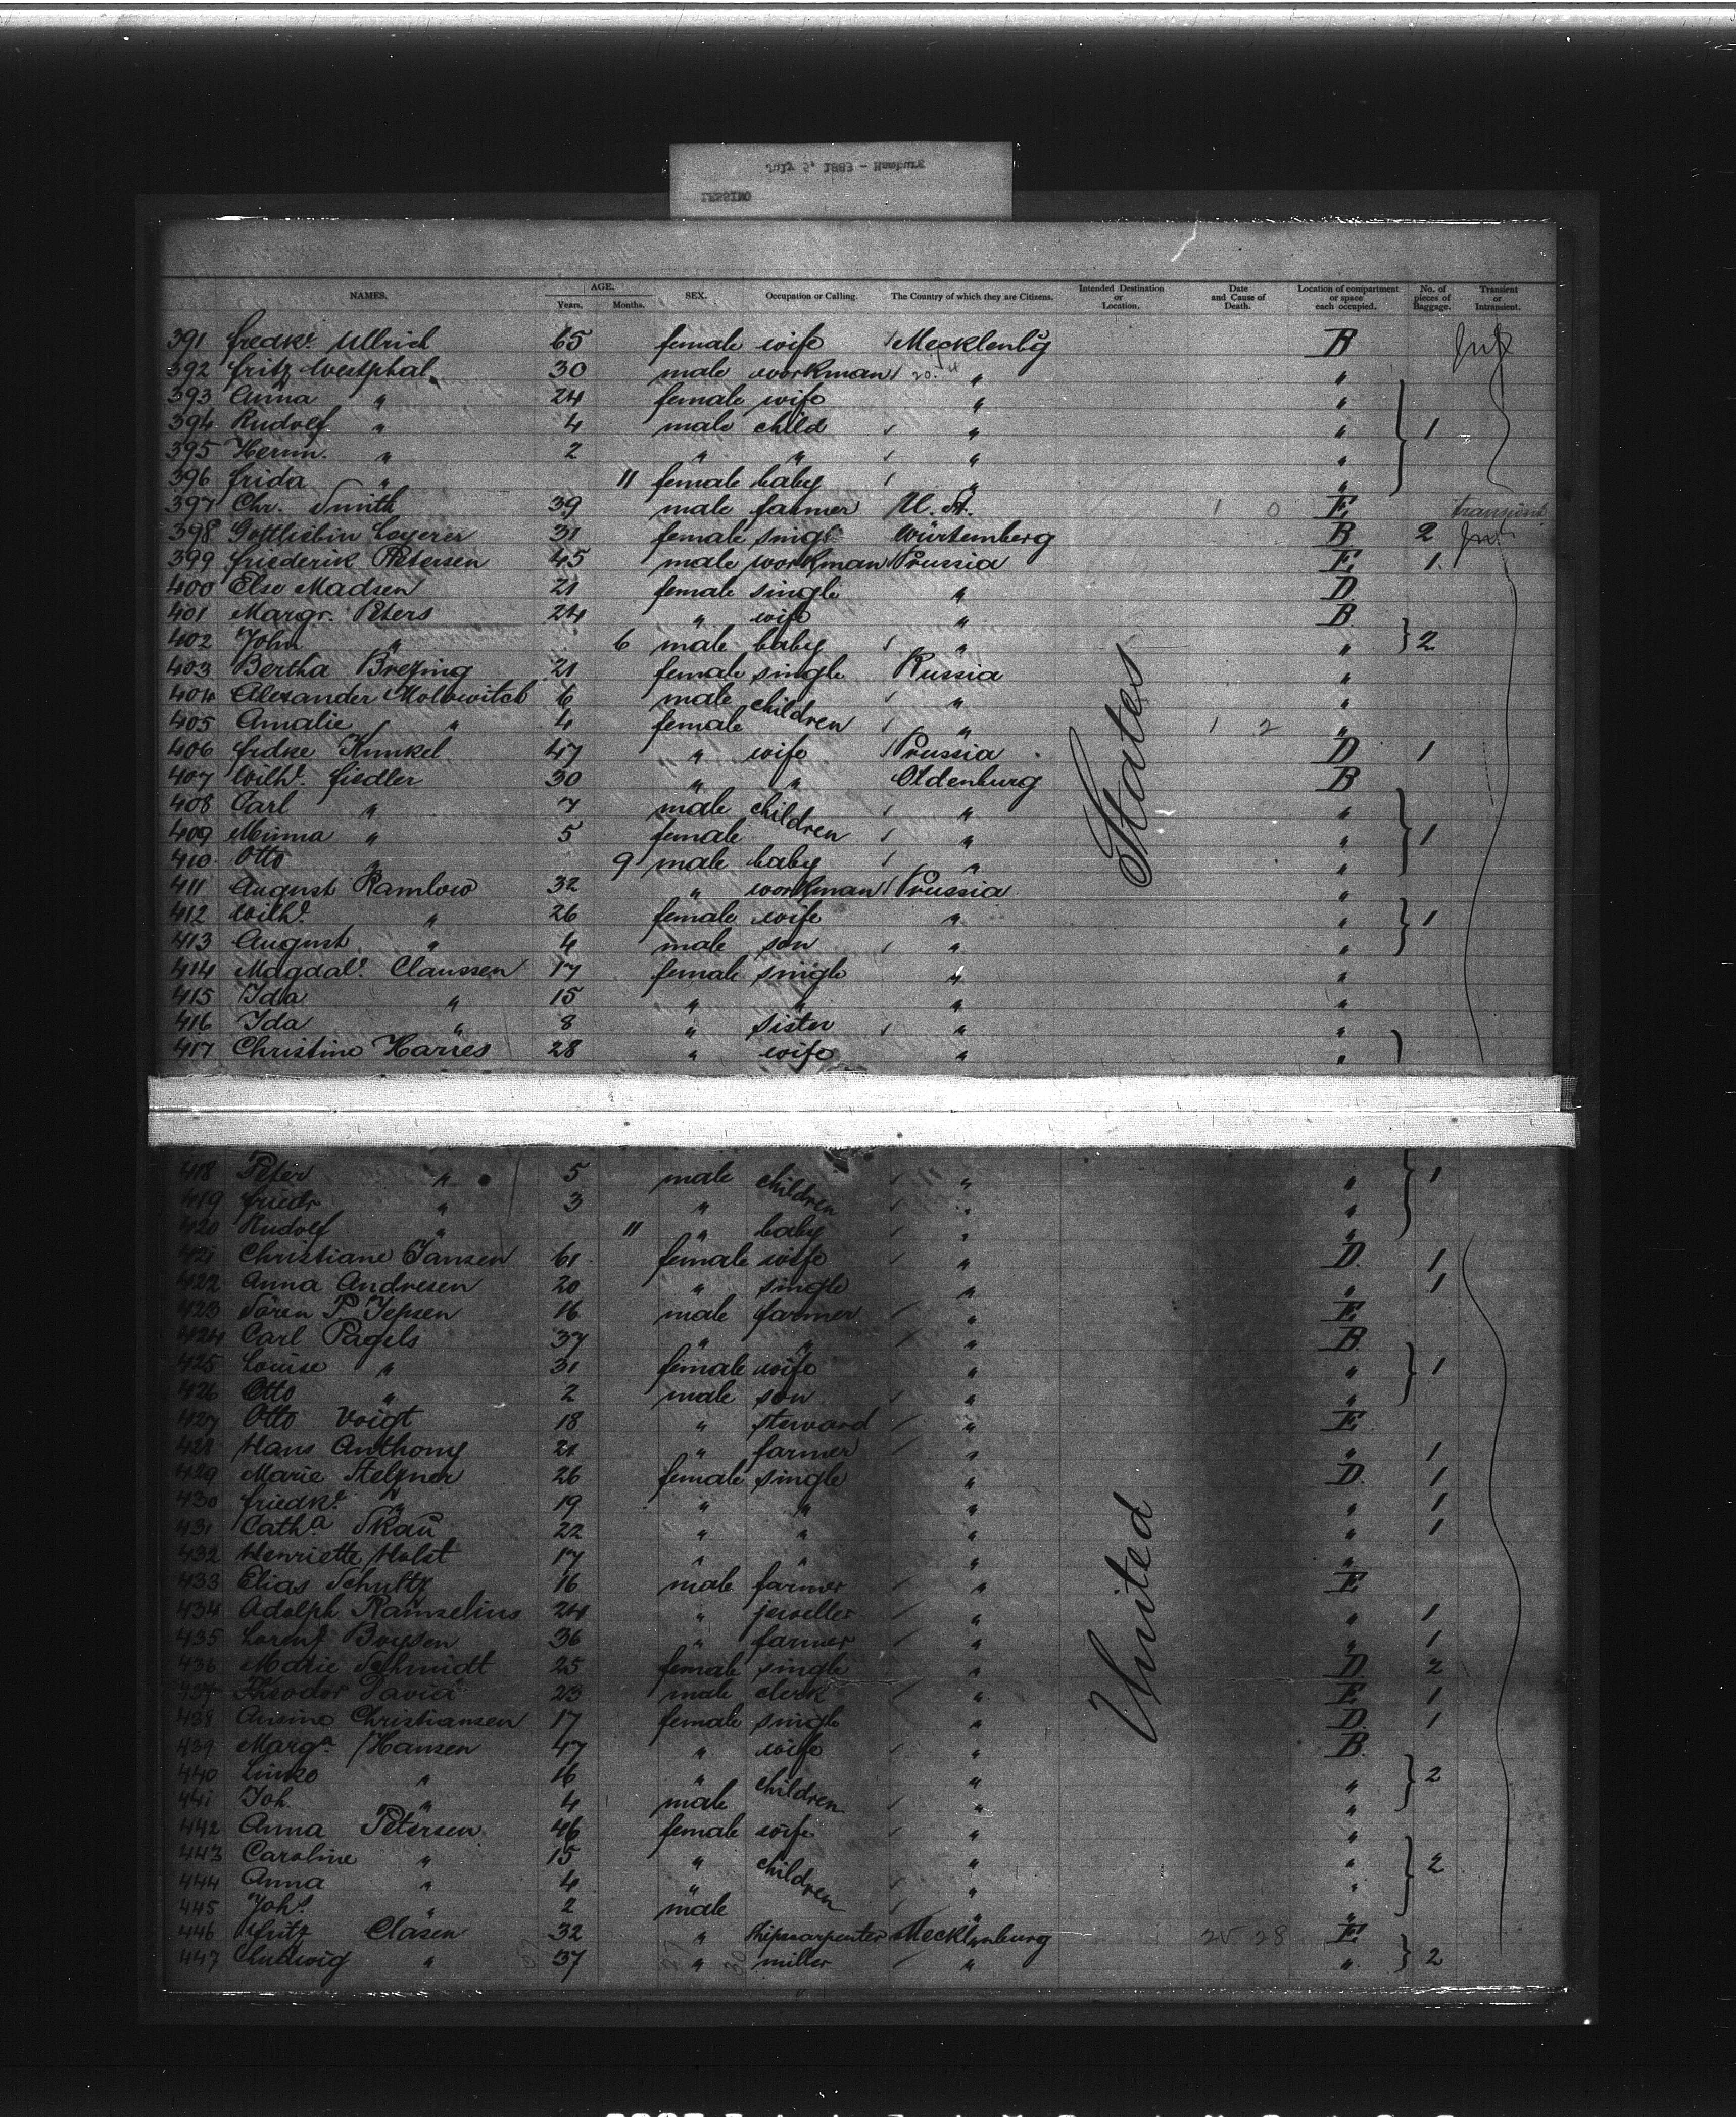 July 5, 1883 - Hamburg
LESSING
NAMES. AGE. Years. Months. SEX. Occupation or Calling. The Country of which they are Citizens. Intended Destination or Location. Date and Cause of Death. Location of compartment or space each occupied. No. of pieces of Baggage. Transient or Intransient.
391 Fredke. Ullrich 65 female wife Mecklenbg B
392 Fritz Westphal 30 male workman " "
393 Anna " 24 female wife " "
394 Rudolf " 4 male child " " 1
395 Herm. " 2 " " " "
396 Frida " 11 female baby " "
397 Chr. Smith 39 male farmer U. St. 1 0 E transient
398 Gottliebin Loyerer 31 female singl Würtemberg B 2
399 Friederik Petersen 45 male workman Prussia E 1
400 Else Madsen 21 female single " D
401 Margr. Peters 24 " wife " B
402 John " 6 male baby " " 2
403 Bertha Brezing 21 female single Russia "
404 Alexander Molowitch 6 male children " "
405 Amalie " 4 female " 1 2 "
406 Fridke Kunkel 47 " wife Prussia D 1
407 Wilhe. Fiedler 30 " " Oldenburg B
408 Carl " 7 male children " "
409 Minna " 5 female " " 1
410 Otto " 9 male baby " "
411 August Ramlow 32 " workman Prussia "
412 Wilhe. " 26 female wife " " 1
413 August " 4 male son " "
414 Magdale. Claussen 17 female single " "
415 Ida " 15 " " " "
416 Ida " 8 " sister " "
417 Christine Harries 28 " wife " "
States
418 Peter " 5 male children " " 1
419 Friedr " 3 " " "
420 Rudolf " 11 " baby " "
421 Christiane Jansen 61 female wife " D 1
422 Anna Andresen 20 " single " " 1
423 Sören P Jepsen 16 male farmer " E
424 Carl Pagels 37 " " " B
425 Louise " 31 female wife " " 1
426 Otto " 2 male son " "
427 Otto Voigt 18 " steward " E
428 Hans Anthony 21 " farmer " " 1
429 Marie Stelzner 26 female single " D 1
430 Friedke. " 19 " " " " 1
431 Catha. Skau 22 " " " " 1
432 Henriette Holst 17 " " " "
433 Elias Schultz 16 male farmer " E
434 Adolph Ramselius 24 " jeweller " " 1
435 Lorenz Boysen 36 " farmer " " 1
436 Marie Schmidt 25 female single " D 2
437 Theodor 23 male clerk " E 1
438 Christiansen 17 female single " D 1
439 Marga. Hansen 47 " wife " B
440 " 16 " children " " 2
441 Joh. " 4 male " "
442 Anna Petersen 46 female wife " "
443 Caroline " 15 " children " " 2
444 Anna " 4 " " "
445 Johs. " 2 male " "
446 Fritz Clasen 32 " shipscarpenter Mecklenburg 25 28 E
447 Ludwig " 37 " miller " " 2
United